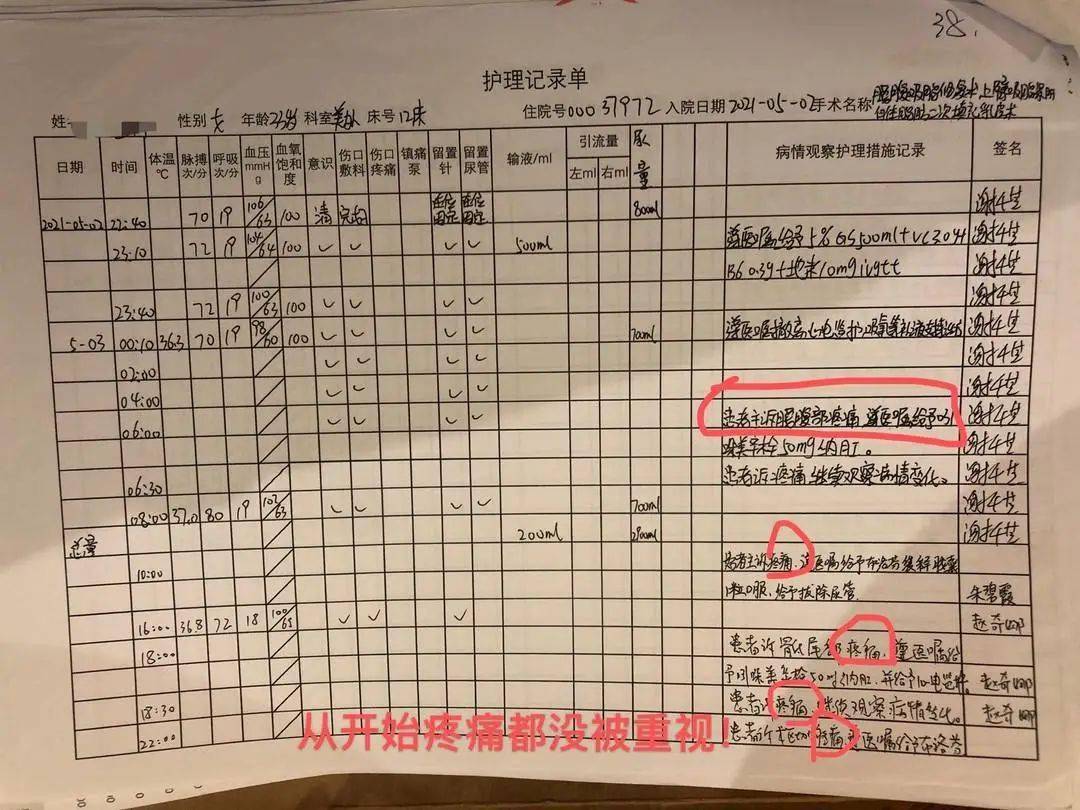 38.
护理记录单
姓 性别 女 年龄 23岁 科室 美外 床号 12床 住院号 00037972 入院日期 2021-05-02 手术名称
日期 时间 体温℃ 脉搏次/分 呼吸次/分 血压mmHg 血氧饱和度 意识 伤口敷料 伤口疼痛 镇痛泵 留置针 留置尿管 输液/ml 引流量 左ml 右ml 尿量 病情观察护理措施记录 签名
2021-05-02 22:40 70 19 106/63 100 清 在位固定 在位固定 800ml
23:10 72 19 104/64 100 ✓ ✓ ✓ ✓ 500ml 遵医嘱给予5%GS500ml+VC3.0+
B6 0.3g+地米10mg ivgtt
23:40 72 19 100/63 100 ✓ ✓ ✓ ✓
5-03 00:10 36.3 70 19 98/60 100 ✓ ✓ ✓ ✓ 700ml 遵医嘱撤离心电监护
02:00 ✓ ✓ ✓ ✓
04:00 ✓ ✓ ✓ ✓
06:00 ✓ ✓ ✓ ✓ 患者主诉腰腹部疼痛,遵医嘱给予吲
哚美辛栓50mg纳肛。
06:30 患者诉疼痛继续观察病情变化。
08:00 37.0 80 19 102/63 ✓ ✓ ✓ ✓ 700ml
总量 200ml 2900ml
10:00 患者主诉疼痛,遵医嘱给予布洛芬缓释胶囊
1粒口服,给予拔除尿管. 朱碧霞
16:00 36.8 72 18 ✓ ✓ ✓
18:00 患者诉骶尾部疼痛,遵医嘱给
予吲哚美辛栓50mg纳肛,并给予
18:30 患者诉疼痛,继续观察病情变化。
22:00 疼痛遵医嘱给予布洛芬
从开始疼痛都没被重视!